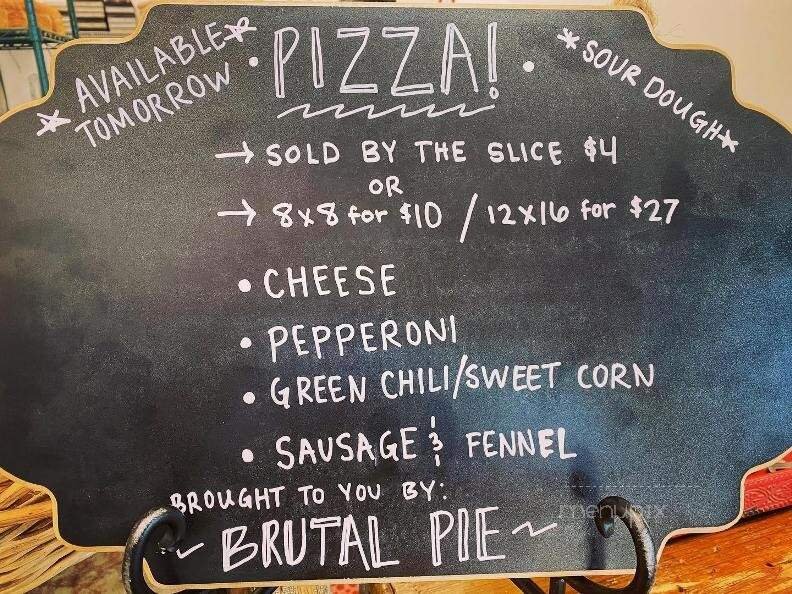 *AVAILABLE*
TOMORROW
• PIZZA! •
*SOUR DOUGH*
→ SOLD BY THE SLICE $4
OR
→ 8x8 for $10 / 12x16 for $27
• CHEESE
• PEPPERONI
• GREEN CHILI/SWEET CORN
• SAUSAGE & FENNEL
BROUGHT TO YOU BY:
~ BRUTAL PIE ~
menupix